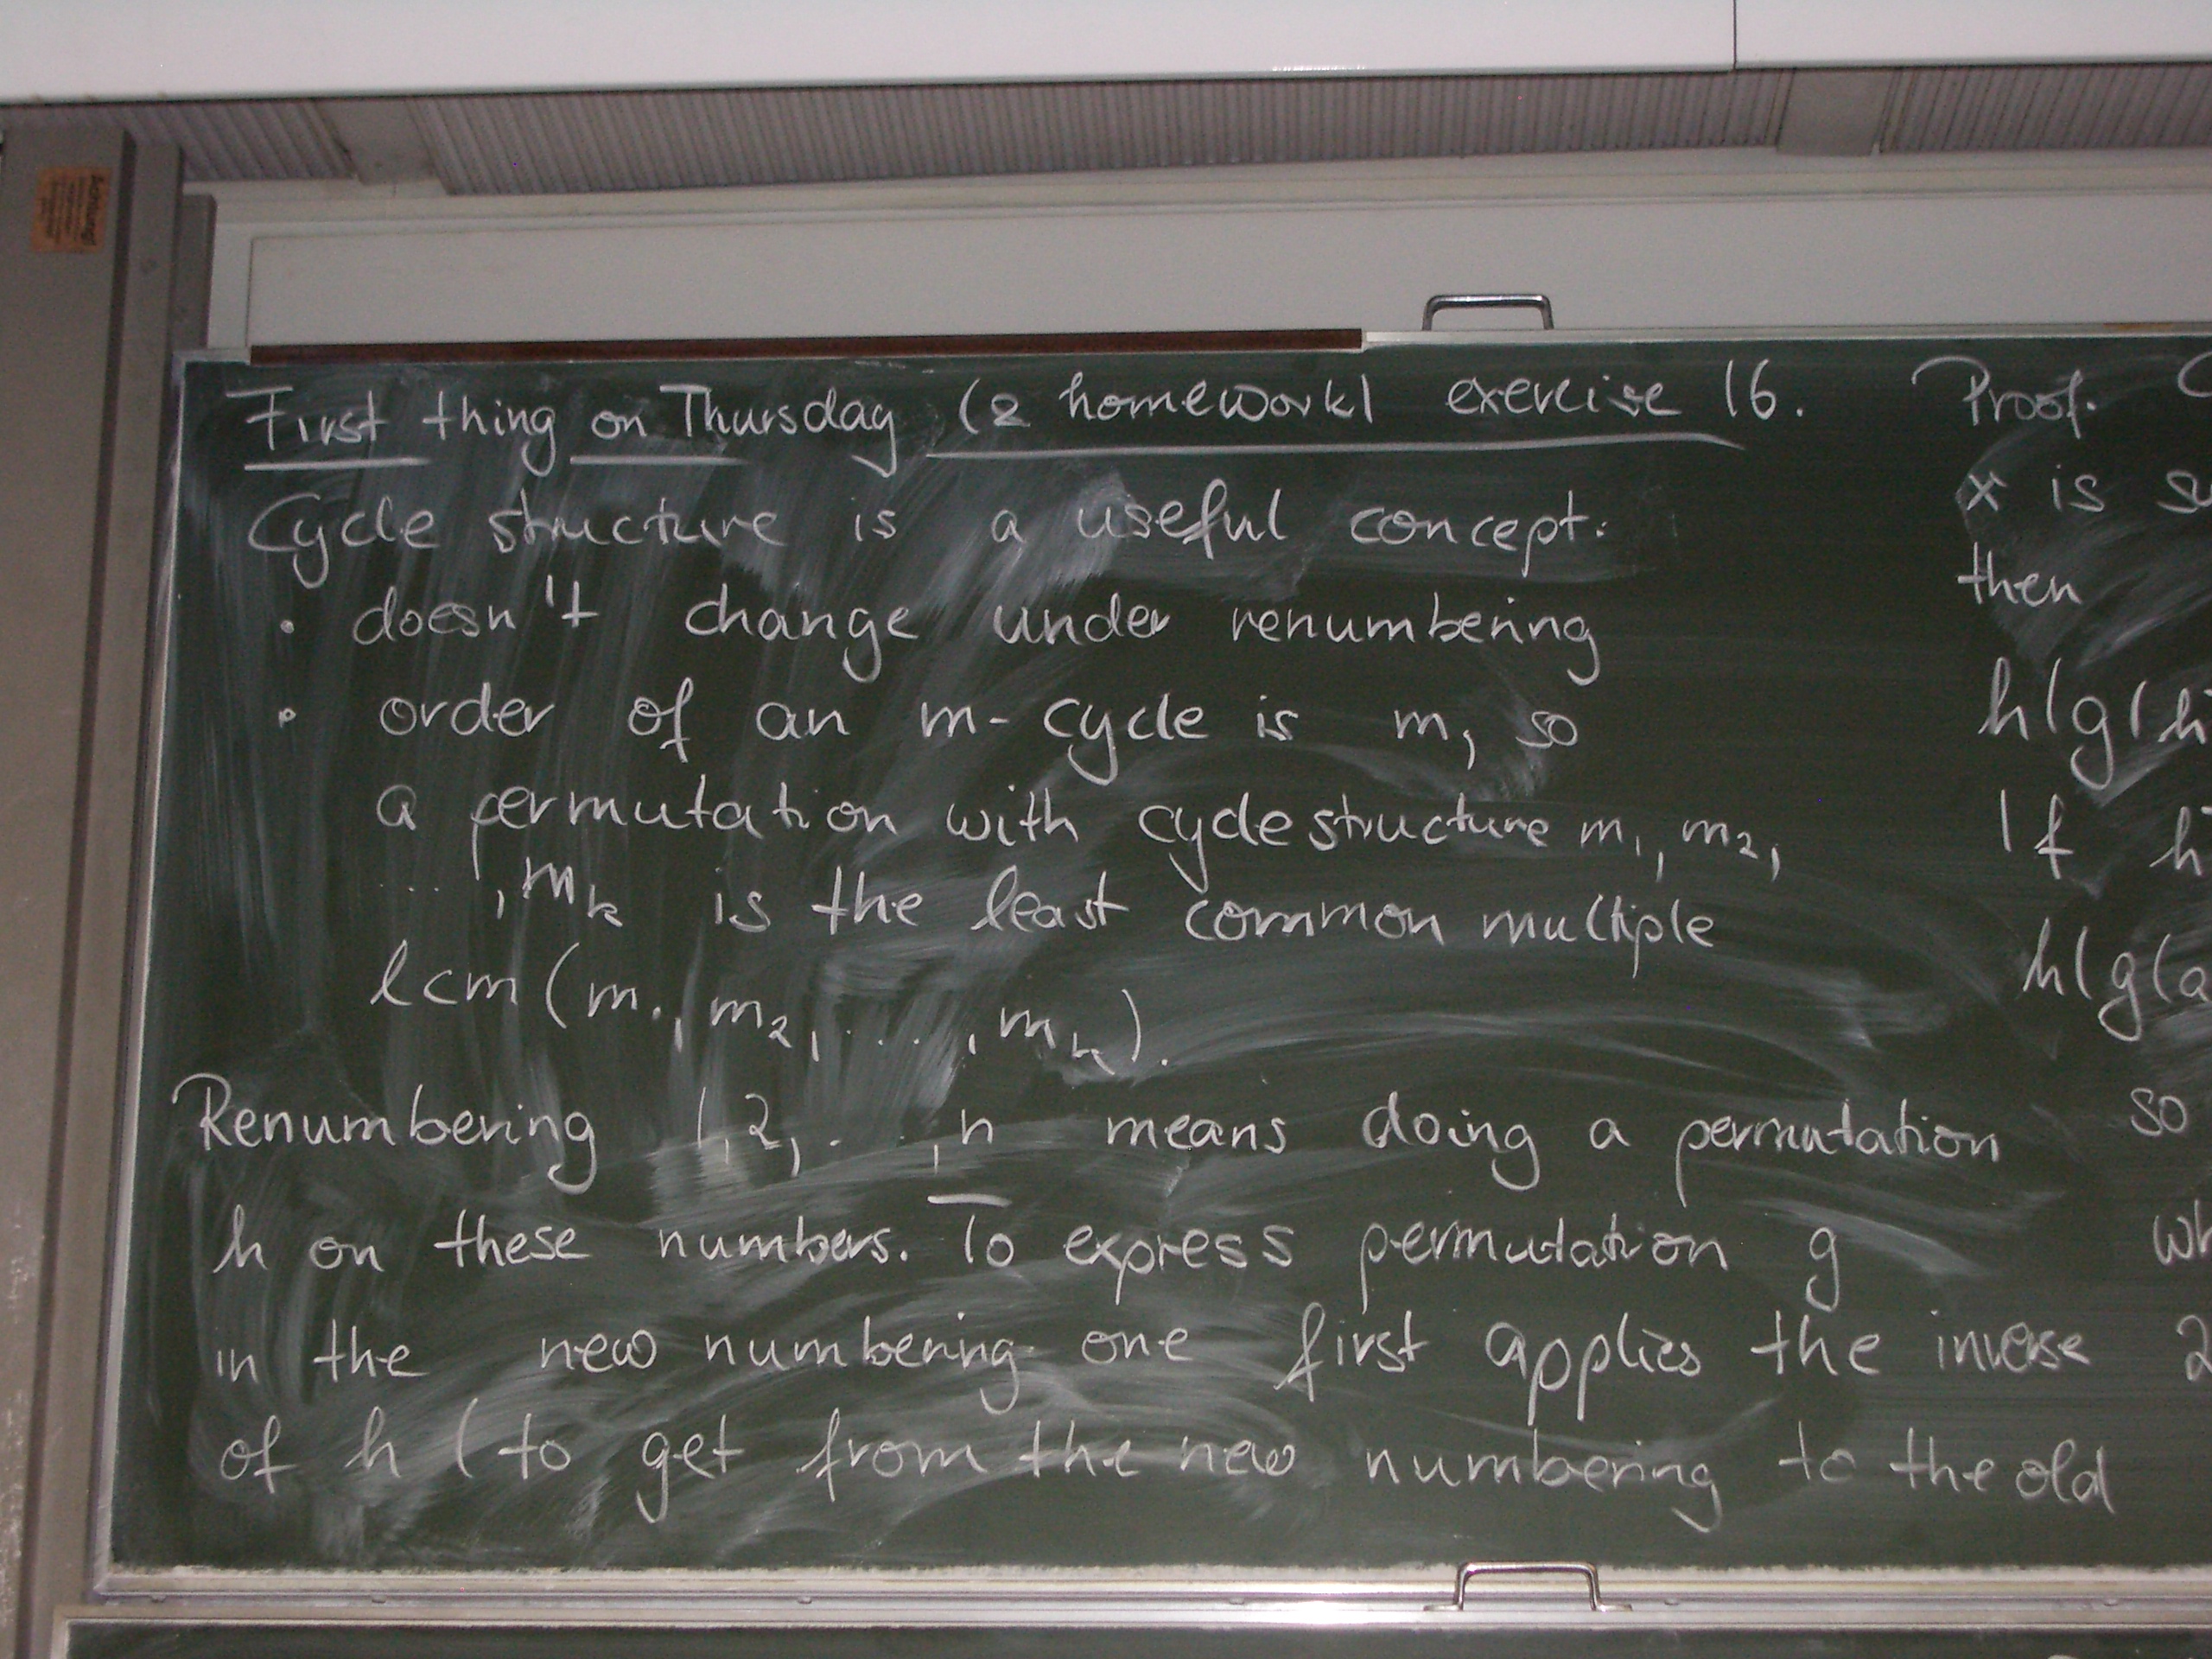 Achtung!
First thing on Thursday (& homework) exercise 16.
Cycle structure is a useful concept:
• doesn't change under renumbering
• order of an m-cycle is m, so
a permutation with cycle structure m₁, m₂,
..., mₖ is the least common multiple
lcm(m₁, m₂, ..., mₖ).
Renumbering 1,2,...,n means doing a permutation
h on these numbers. To express permutation g
in the new numbering one first applies the inverse
of h (to get from the new numbering to the old
Proof.
x is
then
h(g(h
If h
h(g(a
so
wh
2